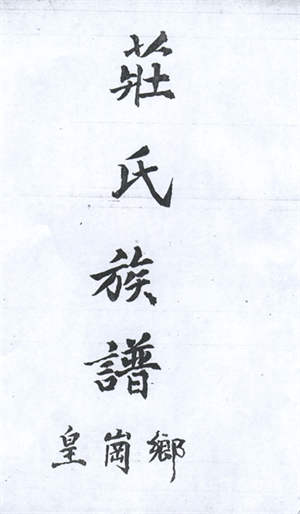 莊氏族譜
皇崗鄉